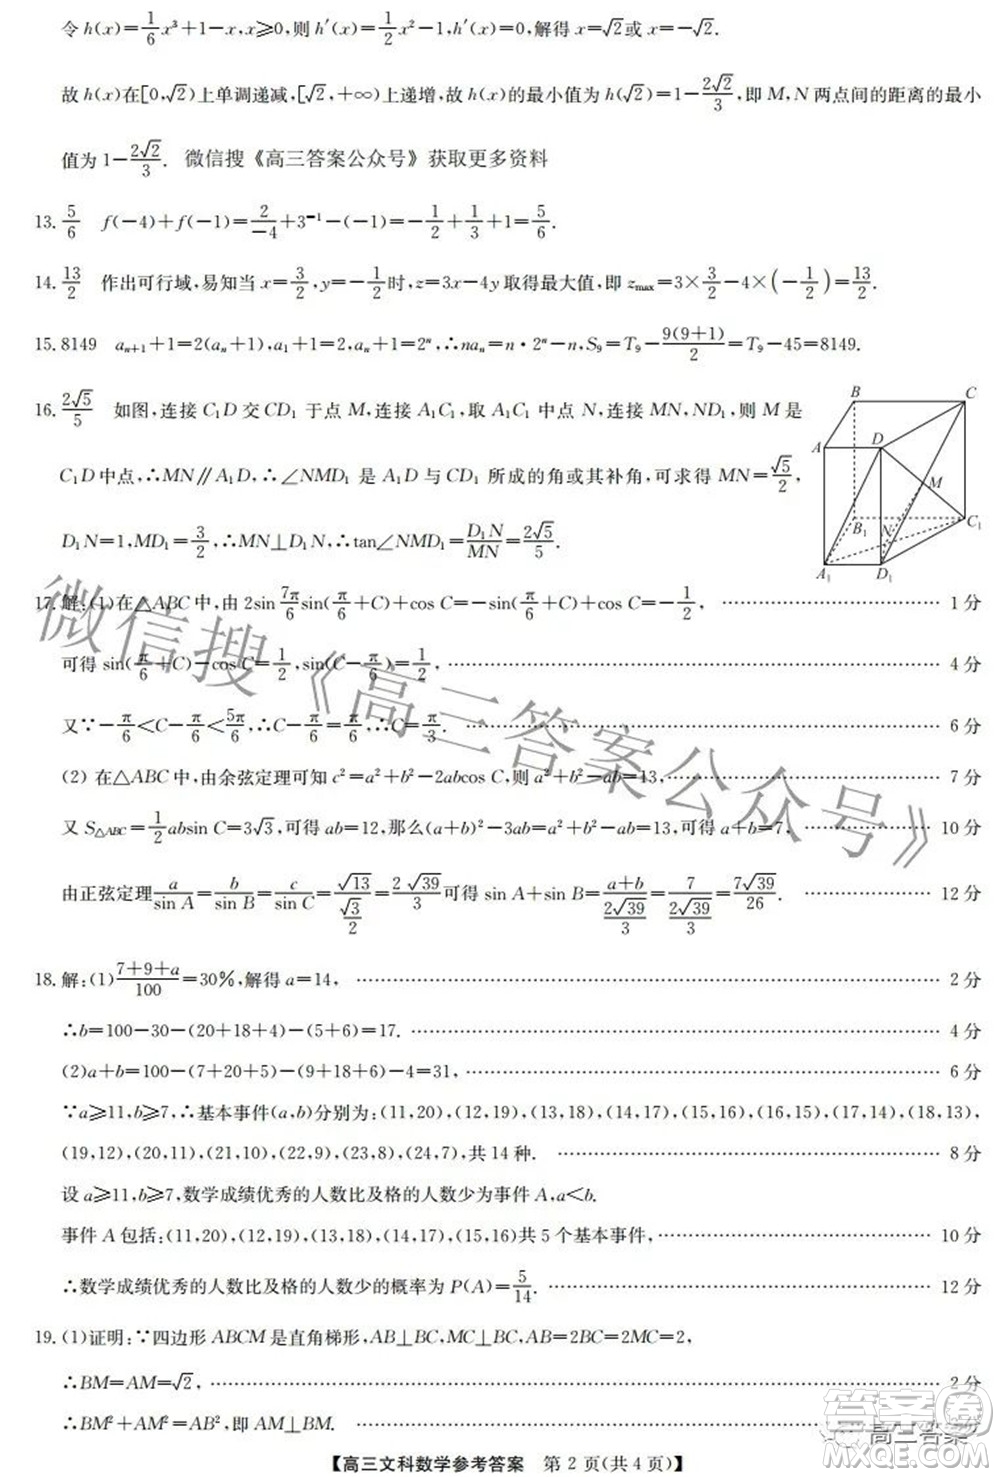 令h(x)=1/6x³+1-x,x⩾0,则h′(x)=1/2x²-1,h′(x)=0,解得x=√2或x=-√2.
故h(x)在[0,√2)上单调递减,[√2,+∞)上递增,故h(x)的最小值为h(√2)=1-2√2/3,即M,N两点间的距离的最小
值为1-2√2/3. 微信搜《高三答案公众号》获取更多资料
13.5/6 f(-4)+f(-1)=2/-4+3⁻¹-(-1)=-1/2+1/3+1=5/6.
14.13/2 作出可行域,易知当x=3/2,y=-1/2时,z=3x-4y取得最大值,即zmax=3×3/2-4×(-1/2)=13/2.
15.8149 aₙ₊₁+1=2(aₙ+1),a₁+1=2,aₙ+1=2ⁿ,∴naₙ=n·2ⁿ-n,S₉=T₉-9(9+1)/2=T₉-45=8149.
16.2√5/5 如图,连接C₁D交CD₁于点M,连接A₁C₁,取A₁C₁中点N,连接MN,ND₁,则M是
C₁D中点,∴MN∥A₁D,∴∠NMD₁是A₁D与CD₁所成的角或其补角,可求得MN=√5/2,
D₁N=1,MD₁=3/2,∴MN⊥D₁N,∴tan∠NMD₁=D₁N/MN=2√5/5.
B
C
A
D
M
B₁
N
C₁
A₁
D₁
17.解:(1)在△ABC中,由2sin7π/6sin(π/6+C)+cos C=-sin(π/6+C)+cos C=-1/2, ……1分
可得sin(π/6+C)-cos C=1/2,sin(C-π/6)=1/2, ……4分
又∵-π/6<C-π/6<5π/6,∴C-π/6=π/6,∴C=π/3. ……6分
(2)在△ABC中,由余弦定理可知c²=a²+b²-2abcos C,则a²+b²-ab=13, ……7分
又S△ABC=1/2absin C=3√3,可得ab=12,那么(a+b)²-3ab=a²+b²-ab=13,可得a+b=7, ……10分
由正弦定理a/sin A=b/sin B=c/sin C=√13/(√3/2)=2√39/3可得sin A+sin B=(a+b)/(2√39/3)=7/(2√39/3)=7√39/26. ……12分
18.解:(1)(7+9+a)/100=30%,解得a=14, ……2分
∴b=100-30-(20+18+4)-(5+6)=17. ……4分
(2)a+b=100-(7+20+5)-(9+18+6)-4=31, ……6分
∵a⩾11,b⩾7,∴基本事件(a,b)分别为:(11,20),(12,19),(13,18),(14,17),(15,16),(16,15),(17,14),(18,13),
(19,12),(20,11),(21,10),(22,9),(23,8),(24,7),共14种. ……8分
设a⩾11,b⩾7,数学成绩优秀的人数比及格的人数少为事件A,a<b.
事件A包括:(11,20),(12,19),(13,18),(14,17),(15,16)共5个基本事件, ……10分
∴数学成绩优秀的人数比及格的人数少的概率为P(A)=5/14. ……12分
19.(1)证明:∵四边形ABCM是直角梯形,AB⊥BC,MC⊥BC,AB=2BC=2MC=2,
∴BM=AM=√2, ……2分
∴BM²+AM²=AB²,即AM⊥BM. ……
【高三文科数学参考答案 第2页(共4页)】
微信搜《高三答案公众号》
高三答案
答案圈
MXQE.COM